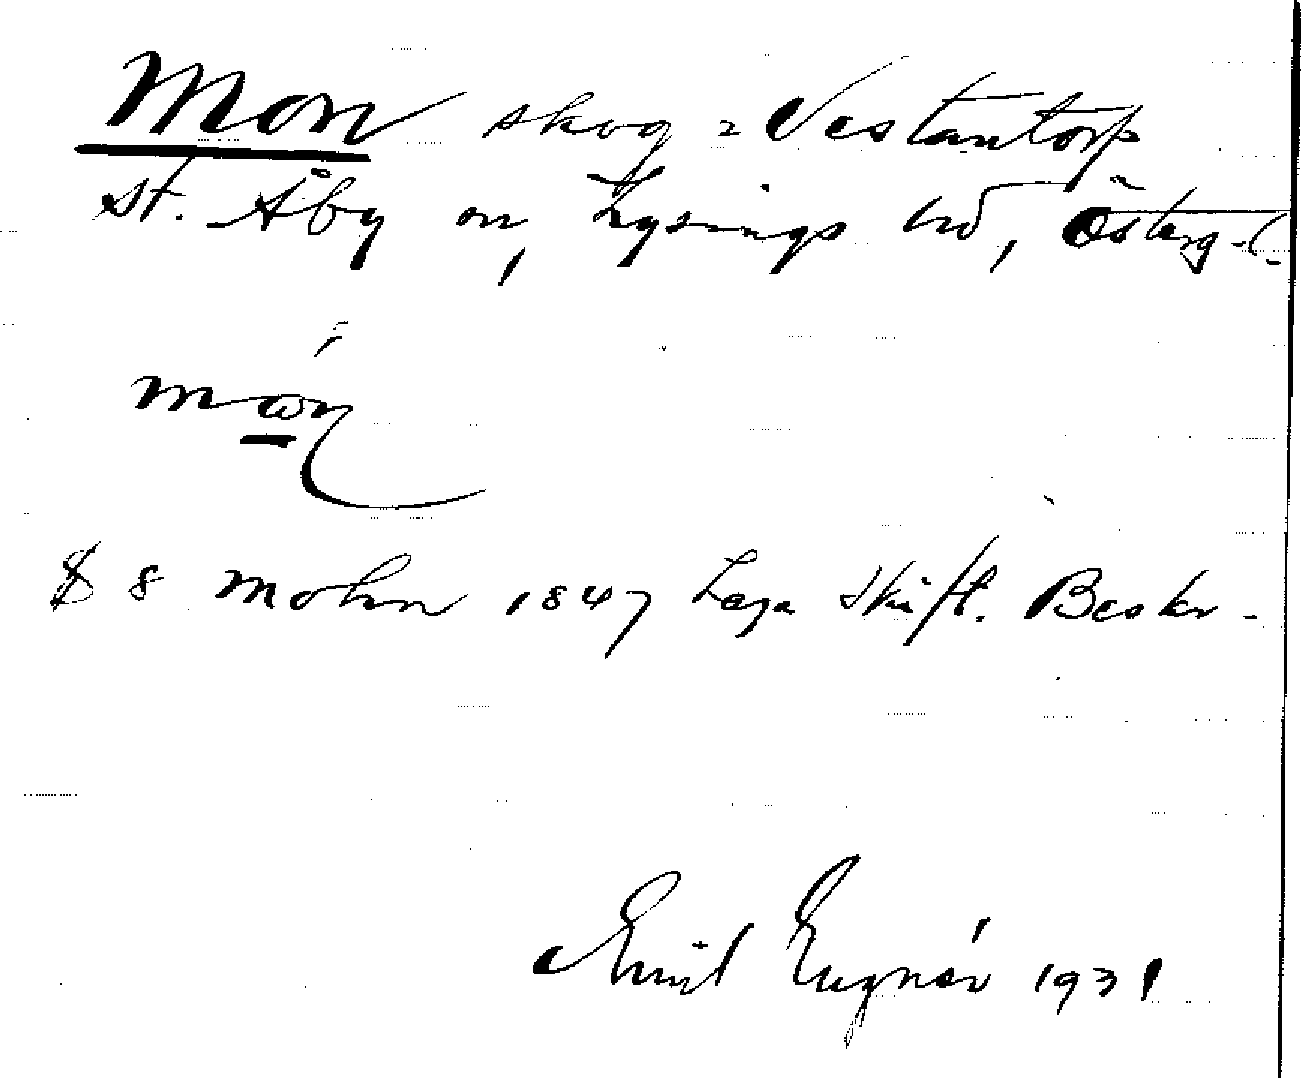 Mon skog = Vestantorp
St. Åby sn, Lysings hd, Österg-l.
mώn
§ 8 Mohn 1847 Laga Skift. Beskr-
Emil Eugnér 1931